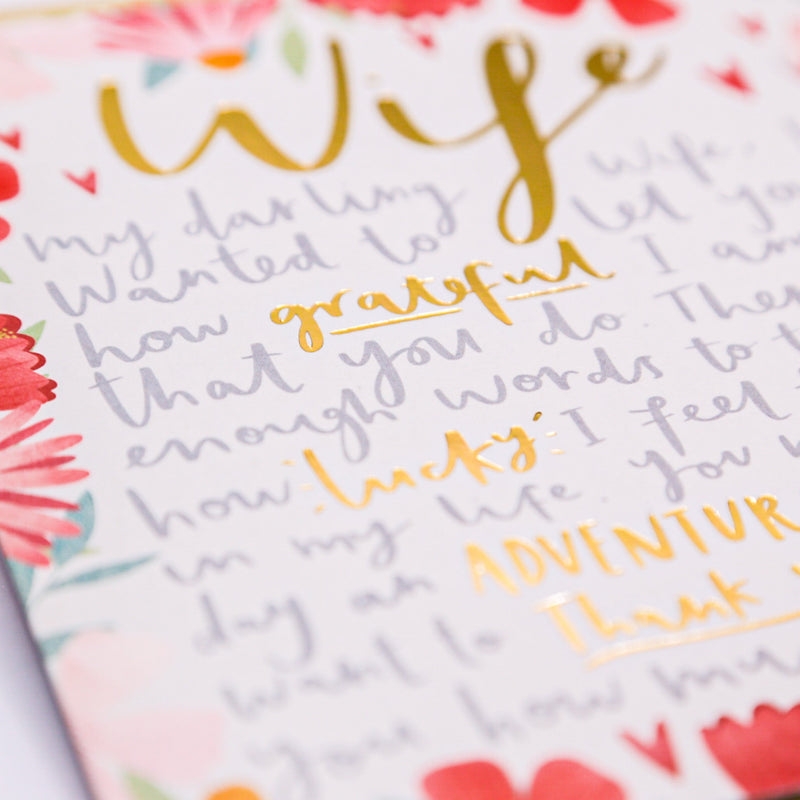 Wife
my darling wife. I
wanted to let you
how grateful I am
that you do. There
enough words to
how lucky I feel
in my life. you
day an ADVENTUR
want to Thank
you how mu